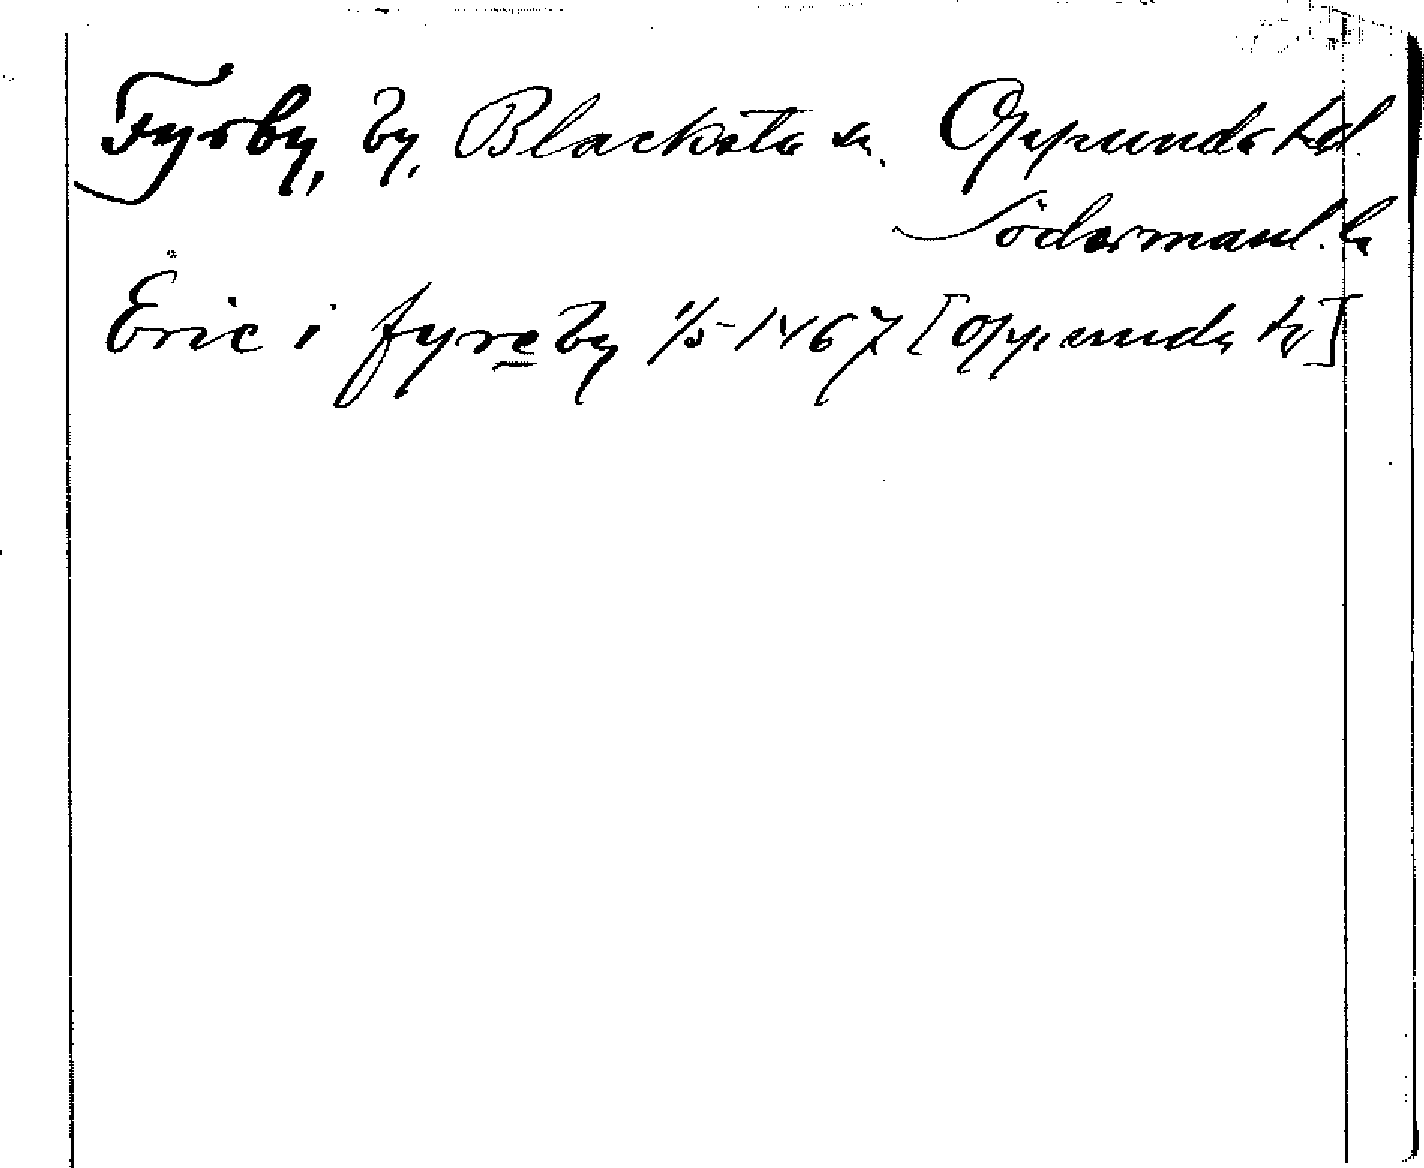 Fyrby, by, Blacksta sn. Oppunda hd.
Södermanl. l.
Eric i fyreby 1/5 1467 [Oppunda hr]